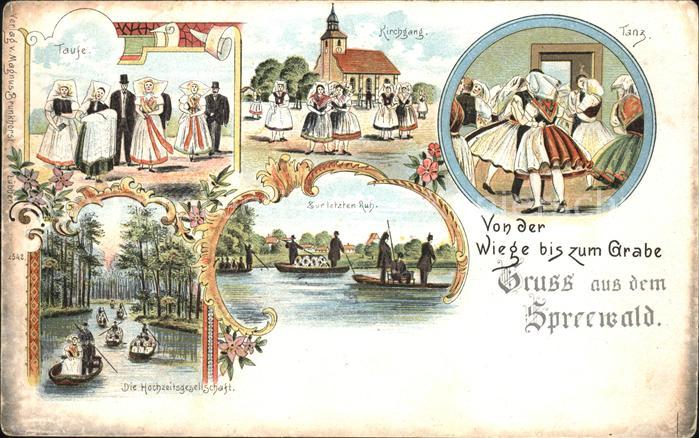 Taufe.
Kirchgang.
Tanz.
Zur letzten Ruh.
Von der
Wiege bis zum Grabe
Gruss aus dem
Spreewald.
Die Hochzeitsgesellschaft.
Verlag v. Magnus Brunkhorst